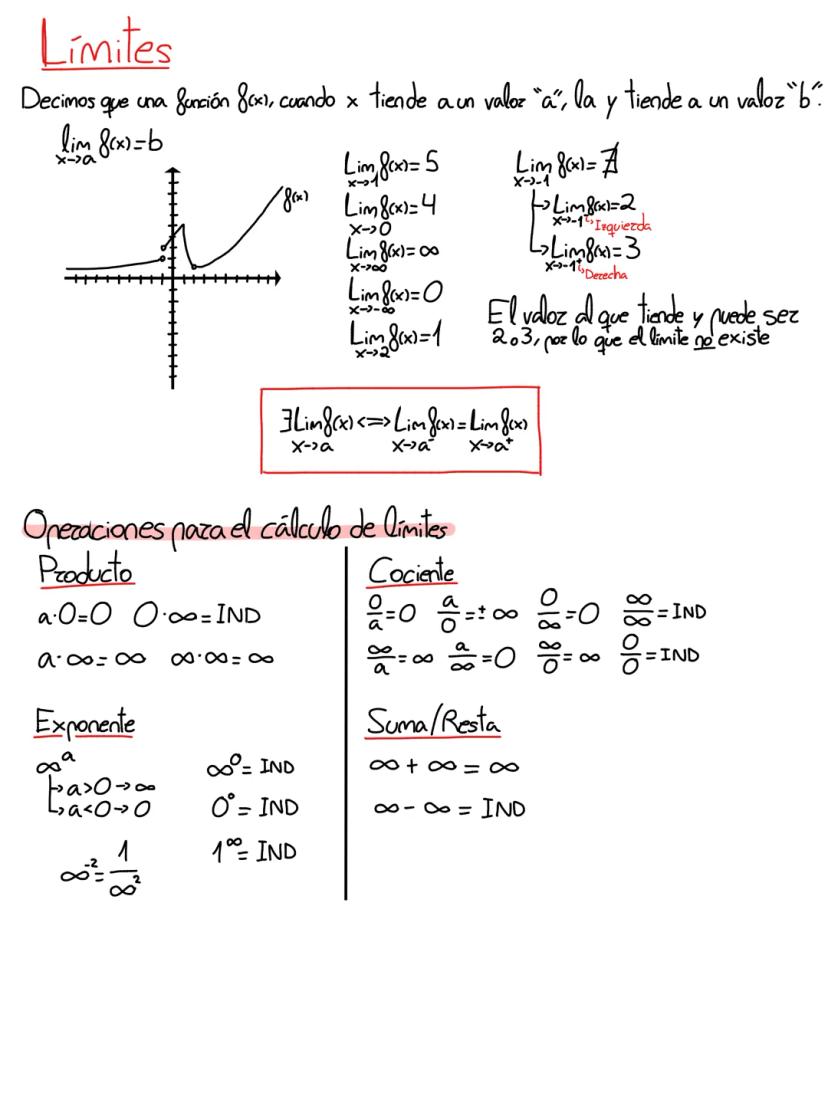 Límites
Decimos que una función f(x), cuando x tiende a un valor "a", la y tiende a un valor "b".
lim f(x)=b
x->a
f(x)
Lim f(x)=5
x->1
Lim f(x)=4
x->0
Lim f(x)=∞
x->∞
Lim f(x)=0
x->-∞
Lim f(x)=1
x->2
Lim f(x)=∄
x->-1
↳Lim f(x)=2
x->-1⁻ ↳Izquierda
↳Lim f(x)=3
x->-1⁺ ↳Derecha
El valor al que tiende y puede ser
2 o 3, por lo que el límite no existe
∃Lim f(x)<=>Lim f(x)=Lim f(x)
x->a x->a⁻ x->a⁺
Operaciones para el cálculo de límites
Producto
a·0=0 0·∞=IND
a·∞=∞ ∞·∞=∞
Cociente
0/a=0 a/0=±∞ 0/∞=0 ∞/∞=IND
∞/a=∞ a/∞=0 ∞/0=∞ 0/0=IND
Exponente
∞ᵃ
↳a>0->∞
↳a<0->0
∞⁻²=1/∞²
∞⁰=IND
0⁰=IND
1^∞=IND
Suma/Resta
∞+∞=∞
∞-∞=IND